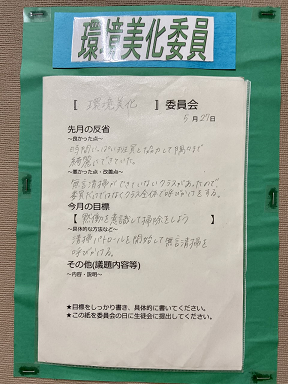 環境美化委員
【 環境美化 】委員会
5月27日
先月の反省
~良かった点~
時間いっぱい全員で協力して隅まで
綺麗にできていた。
~悪かった点・改善点~
無言清掃ができていないクラスがあったので、
委員だけではなくクラス全体で呼びかけをする。
今月の目標
【 無言を意識して掃除をしよう 】
~具体的な方法など~
清掃パトロールを開始して無言清掃を
呼びかける。
その他(議題内容等)
~内容・説明~
★目標をしっかり書き、具体的に書いてください。
★この紙を委員会の日に生徒会に提出してください。